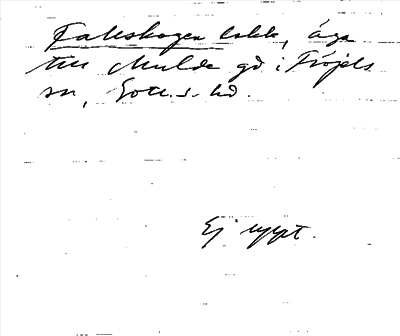 Falleskogen lokk, äga
till Mulde gd i Fröjels
sn, Gotl. s. hd.
Ej uppt.